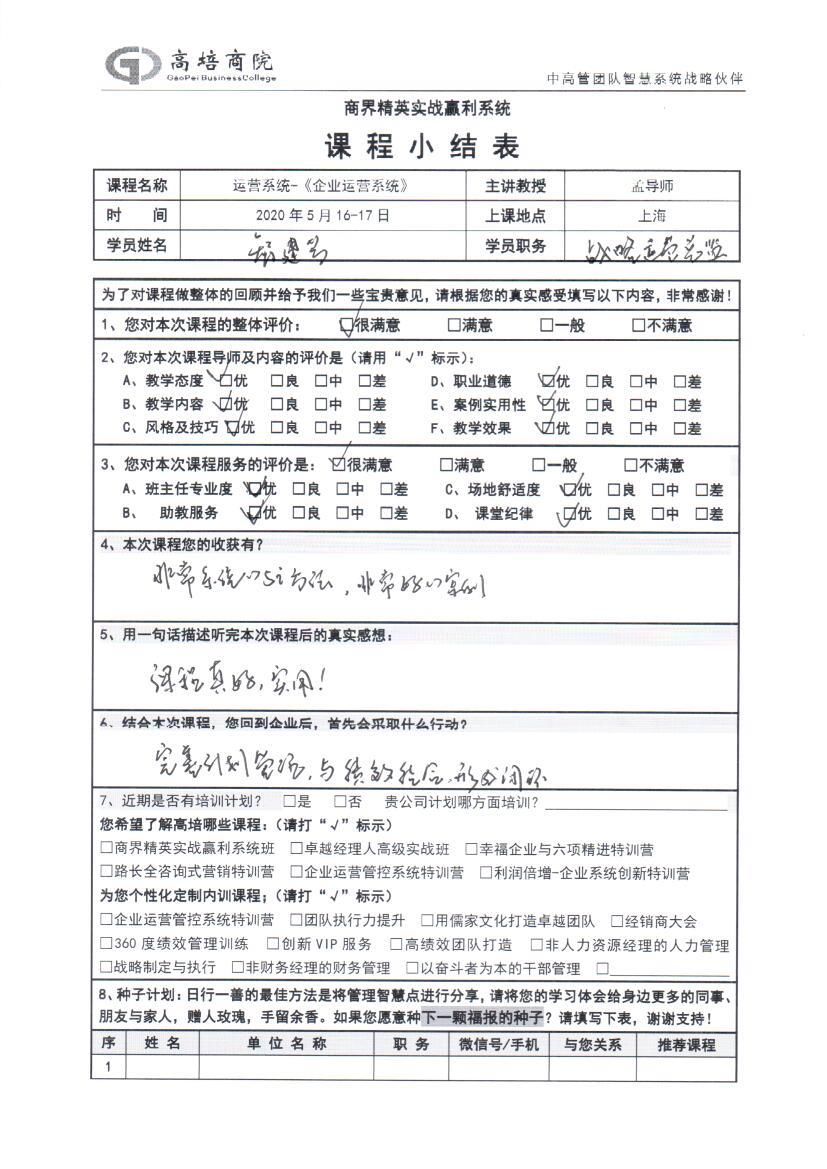 高培商院
GaoPei BusinessCollege
中高管团队智慧系统战略伙伴
商界精英实战赢利系统
课程小结表
课程名称 运营系统-《企业运营系统》 主讲教授 孟导师
时 间 2020年5月16-17日 上课地点 上海
学员姓名 学员职务 战略运营总监
为了对课程做整体的回顾并给予我们一些宝贵意见，请根据您的真实感受填写以下内容，非常感谢！
1、您对本次课程的整体评价： ☑很满意 □满意 □一般 □不满意
2、您对本次课程导师及内容的评价是（请用“√”标示）：
A、教学态度 ☑优 □良 □中 □差 D、职业道德 ☑优 □良 □中 □差
B、教学内容 ☑优 □良 □中 □差 E、案例实用性 ☑优 □良 □中 □差
C、风格及技巧 ☑优 □良 □中 □差 F、教学效果 ☑优 □良 □中 □差
3、您对本次课程服务的评价是： ☑很满意 □满意 □一般 □不满意
A、班主任专业度 ☑优 □良 □中 □差 C、场地舒适度 ☑优 □良 □中 □差
B、 助教服务 ☑优 □良 □中 □差 D、 课堂纪律 ☑优 □良 □中 □差
4、本次课程您的收获有？
非常系统的方法，非常好的案例
5、用一句话描述听完本次课程后的真实感想：
课程真好，实用！
6、结合本次课程，您回到企业后，首先会采取什么行动？
完善计划管理，与绩效结合，形成闭环
7、近期是否有培训计划？ □是 □否 贵公司计划哪方面培训？
您希望了解高培哪些课程：（请打“√”标示）
□商界精英实战赢利系统班 □卓越经理人高级实战班 □幸福企业与六项精进特训营
□路长全咨询式营销特训营 □企业运营管控系统特训营 □利润倍增-企业系统创新特训营
为您个性化定制内训课程；（请打“√”标示）
□企业运营管控系统特训营 □团队执行力提升 □用儒家文化打造卓越团队 □经销商大会
□360度绩效管理训练 □创新VIP服务 □高绩效团队打造 □非人力资源经理的人力管理
□战略制定与执行 □非财务经理的财务管理 □以奋斗者为本的干部管理 □
8、种子计划：日行一善的最佳方法是将管理智慧点进行分享，请将您的学习体会给身边更多的同事、
朋友与家人，赠人玫瑰，手留余香。如果您愿意种下一颗福报的种子？请填写下表，谢谢支持！
序 姓名 单位名称 职务 微信号/手机 与您关系 推荐课程
1